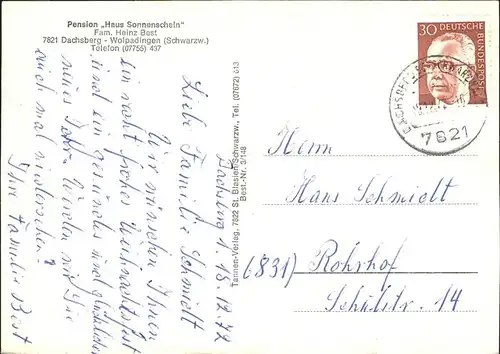 Pension „Haus Sonnenschein"
Fam. Heinz Best
7821 Dachsberg - Wolpadingen (Schwarzw.)
Telefon (07755) 437
Dachsberg, 13.12.72
Liebe Familie Schmidt
Wir wünschen Ihnen
ein recht frohes Weihnachtsfest
und ein gesundes und glückliches
neues Jahr. Würden wir Sie
auch mal wiedersehen?
Ihre Familie Best
Tannen-Verlag, 7822 St. Blasien/Schwarzw., Tel. (07672) 613
Best.-Nr. 3/148
30
DEUTSCHE BUNDESPOST
DACHSBERG
7821
Herrn
Hans Schmidt
(6831) Rohrhof
Schulstr. 14